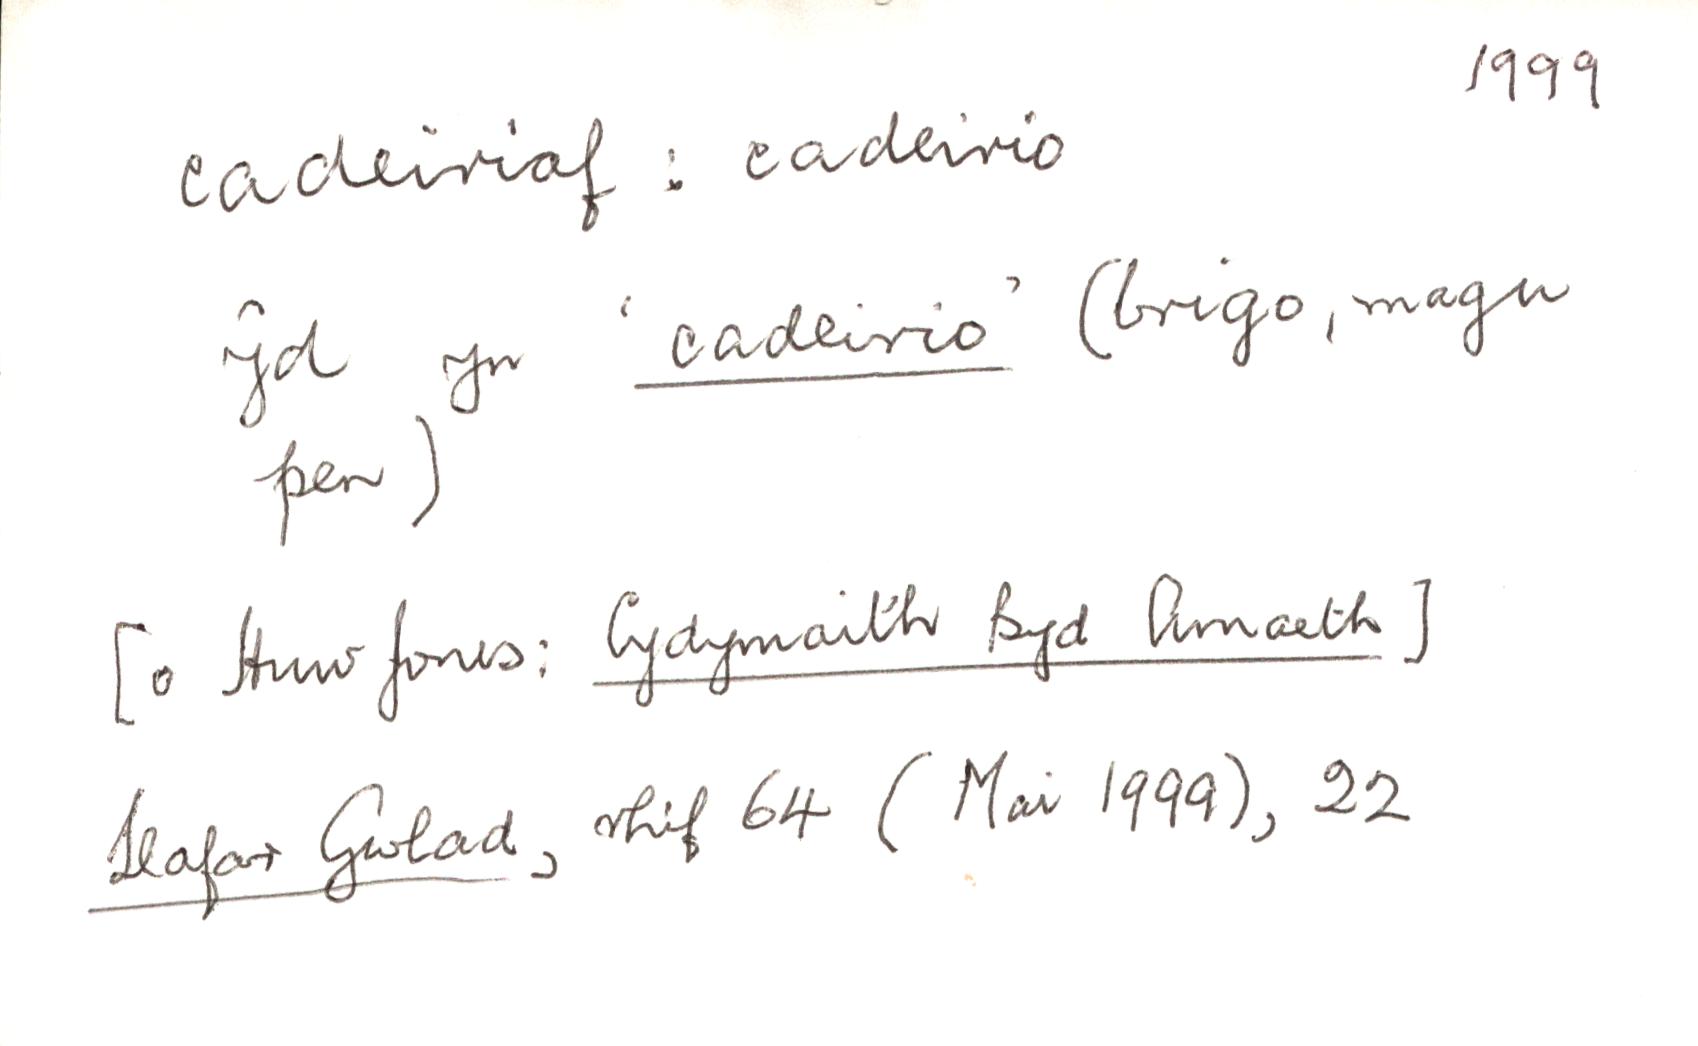 1999
cadeiriaf : cadeirio
ŷd yn 'cadeirio' (brigo, magu
pen)
[o Huw Jones: Cydymaith Byd Amaeth]
Llafar Gwlad, rhif 64 (Mai 1999), 22